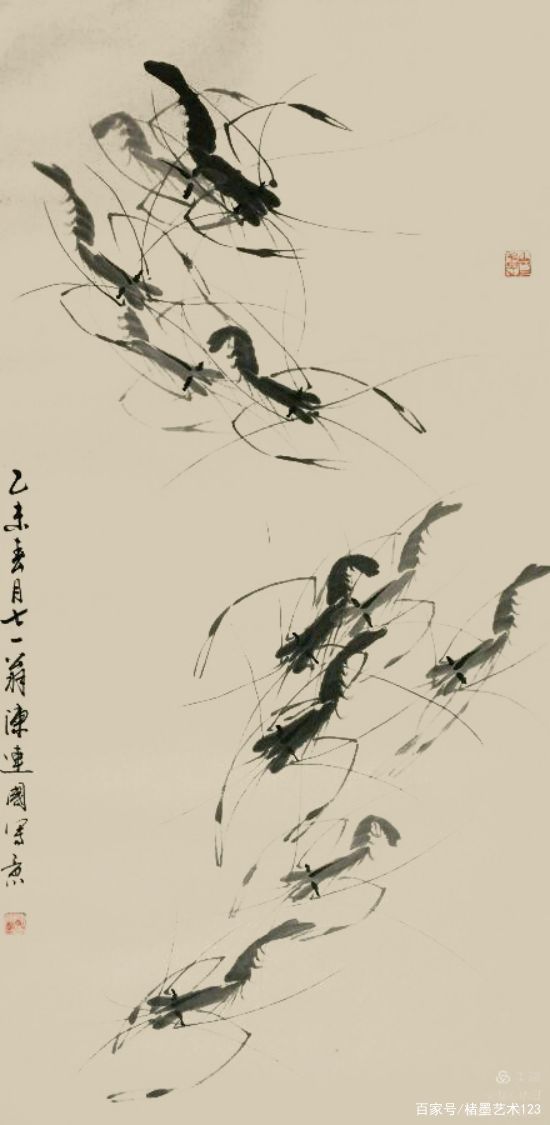 乙未春月七一翁陳連國写意
百家号/楮墨艺术123